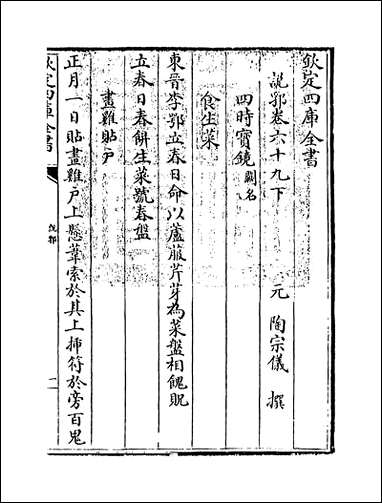 欽定四庫全書
說郛卷六十九下
元 陶宗儀 撰
四時寶鏡 闕名
食生菜
東晉李鄂立春日命以蘆菔芹芽為菜盤相餽貺
立春日春餅生菜號春盤
畫雞貼户
正月一日貼畫雞户上懸葦索於其上揷符於旁百鬼
欽定四庫全書
說郛
一